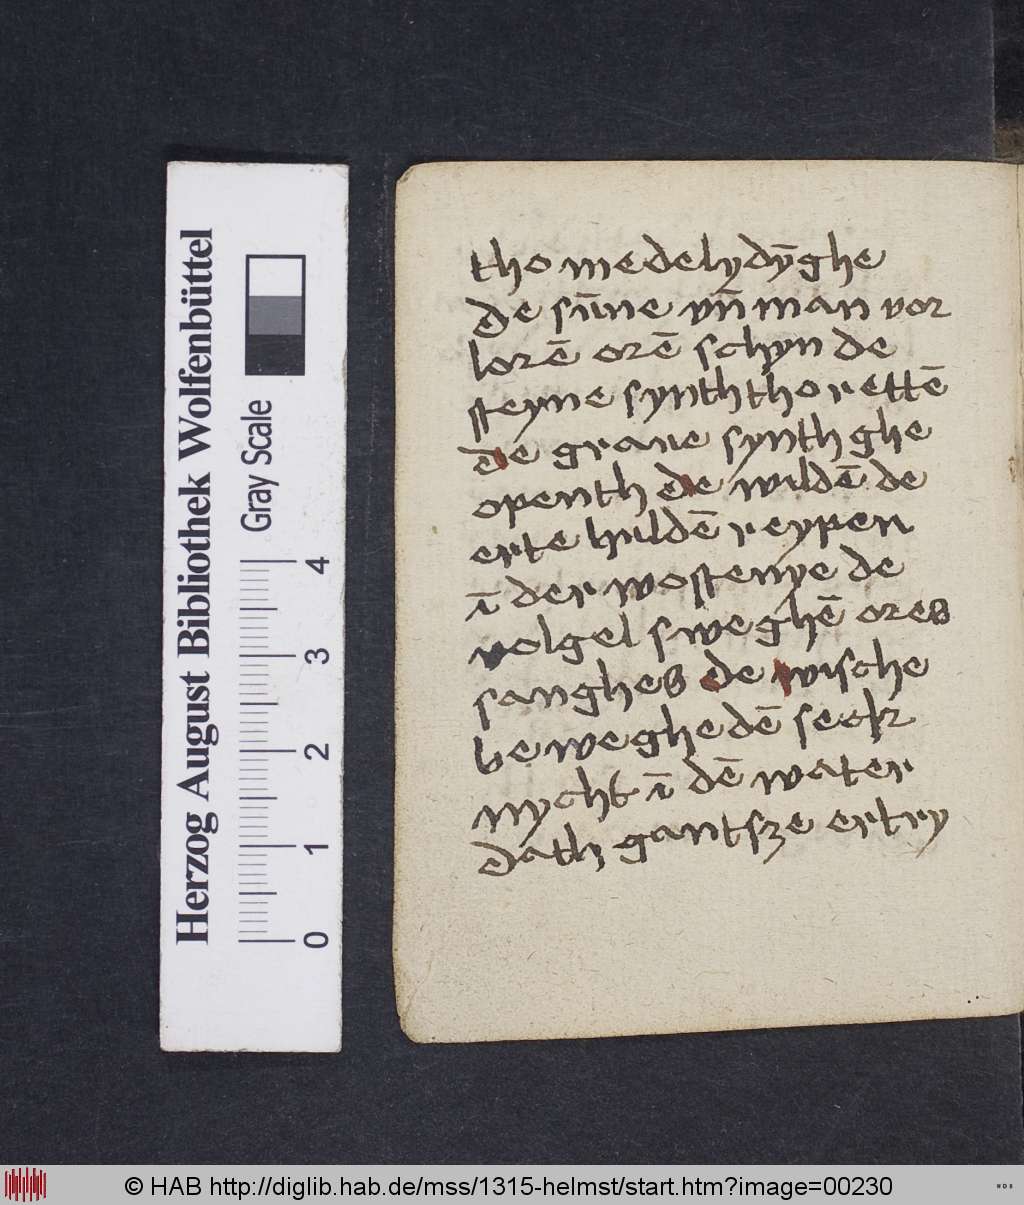 Herzog August Bibliothek Wolfenbüttel
Gray Scale
0 1 2 3 4
tho medelydȳghe
de sūne vn̄ man vor
lorē orē schyn de
steyne synth tho rettē
de graue synth ghe
openth de wildē de
erte huldē reypen
ī der wostenye de
volgel sweghē ores
sanghes de wische
be weghe dē seck
nycht ī dē water
dath gantsze ertry
© HAB http://diglib.hab.de/mss/1315-helmst/start.htm?image=00230